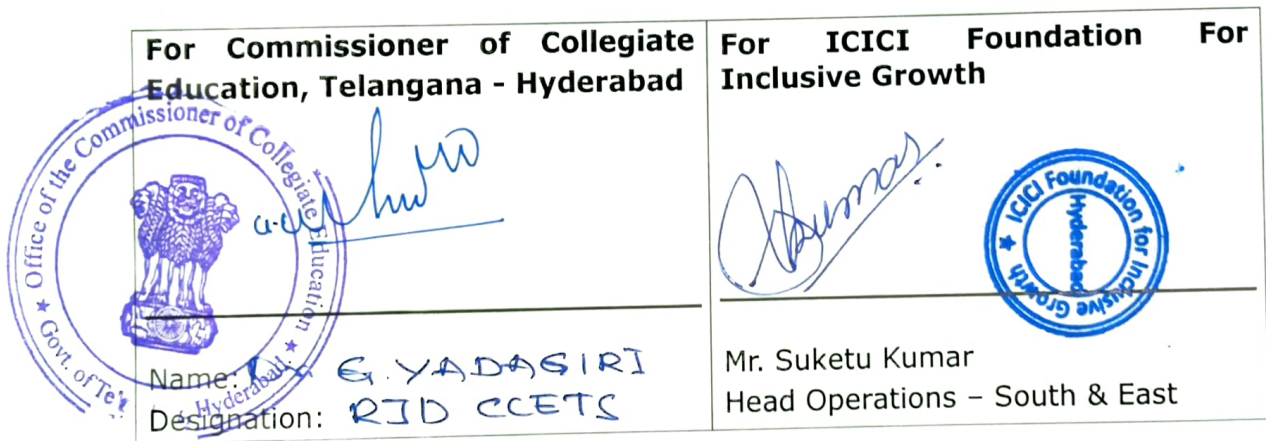 For Commissioner of Collegiate
Education, Telangana - Hyderabad
Office of the Commissioner of Collegiate Education
★ Govt. of Te
Hyderabad. ★
Name: Dr. G. YADAGIRI
Designation: RJD CCETS
For ICICI Foundation For
Inclusive Growth
Kumar
★ ICICI Foundation for Inclusive Growth
Hyderabad
Mr. Suketu Kumar
Head Operations – South & East